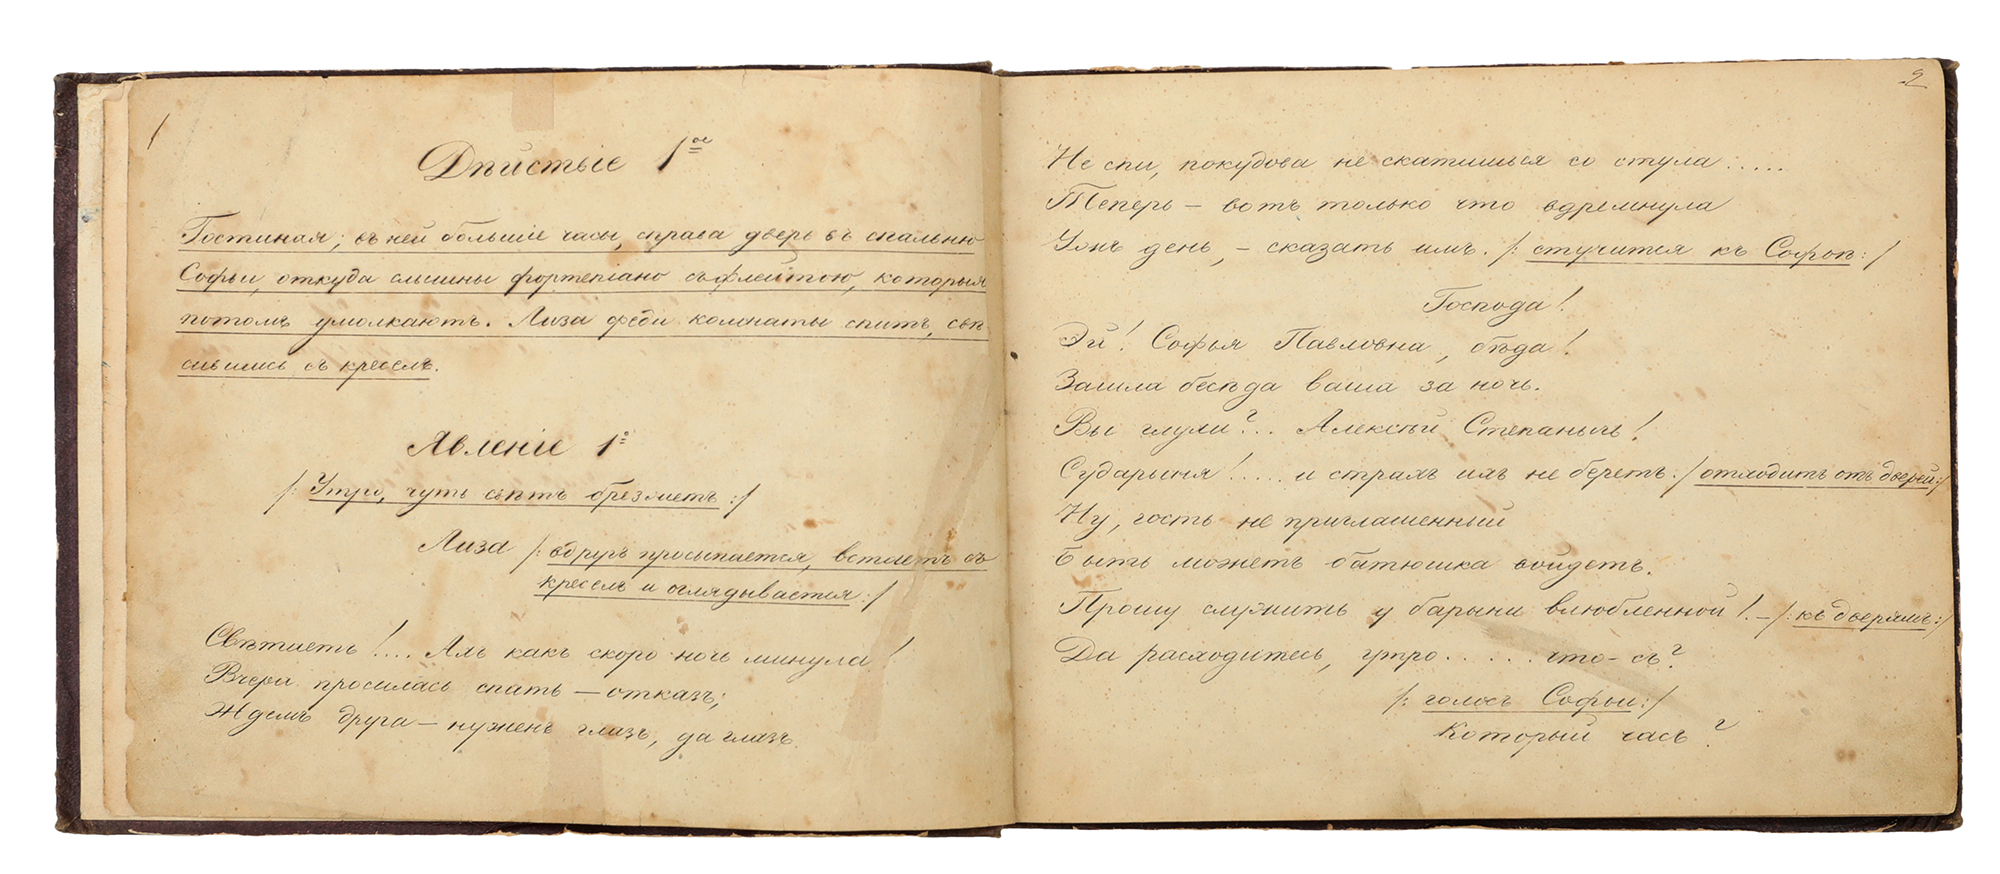 1
Дѣйствіе 1ое
Гостиная; въ ней большіе часы, справа дверь въ спальню
Софьи, откуда слышны фортепіано съ флейтою, которыя
потомъ умолкаютъ. Лиза среди комнаты спитъ, свѣ-
сившись съ креселъ.
Явленіе 1е
/: Утро, чуть свѣтъ брезжетъ :/
Лиза /: вдругъ просыпается, встаетъ съ
креселъ и оглядывается :/
Свѣтаетъ!... Ахъ какъ скоро ночь минула!
Вчера просилась спать — отказъ;
Ждемъ друга — нуженъ глазъ, да глазъ.
2
Не спи, покудова не скатишься со стула.....
Теперь — вотъ только что вздремнула
Ужъ день, — сказать имъ. /: стучится къ Софьѣ :/
Господа!
Эй! Софья Павловна, бѣда!
Зашла бесѣда ваша за ночь.
Вы глухи?.. Алексѣй Степанычъ!
Сударыня!..... и страхъ ихъ не беретъ. / отходитъ отъ дверей :/
Ну, гость не приглашенный
Быть можетъ батюшка войдетъ.
Прошу служить у барыни влюбленной! — /: къ дверямъ :/
Да расходитесь, утро..... что-съ?
/: голосъ Софьи :/
Который часъ?